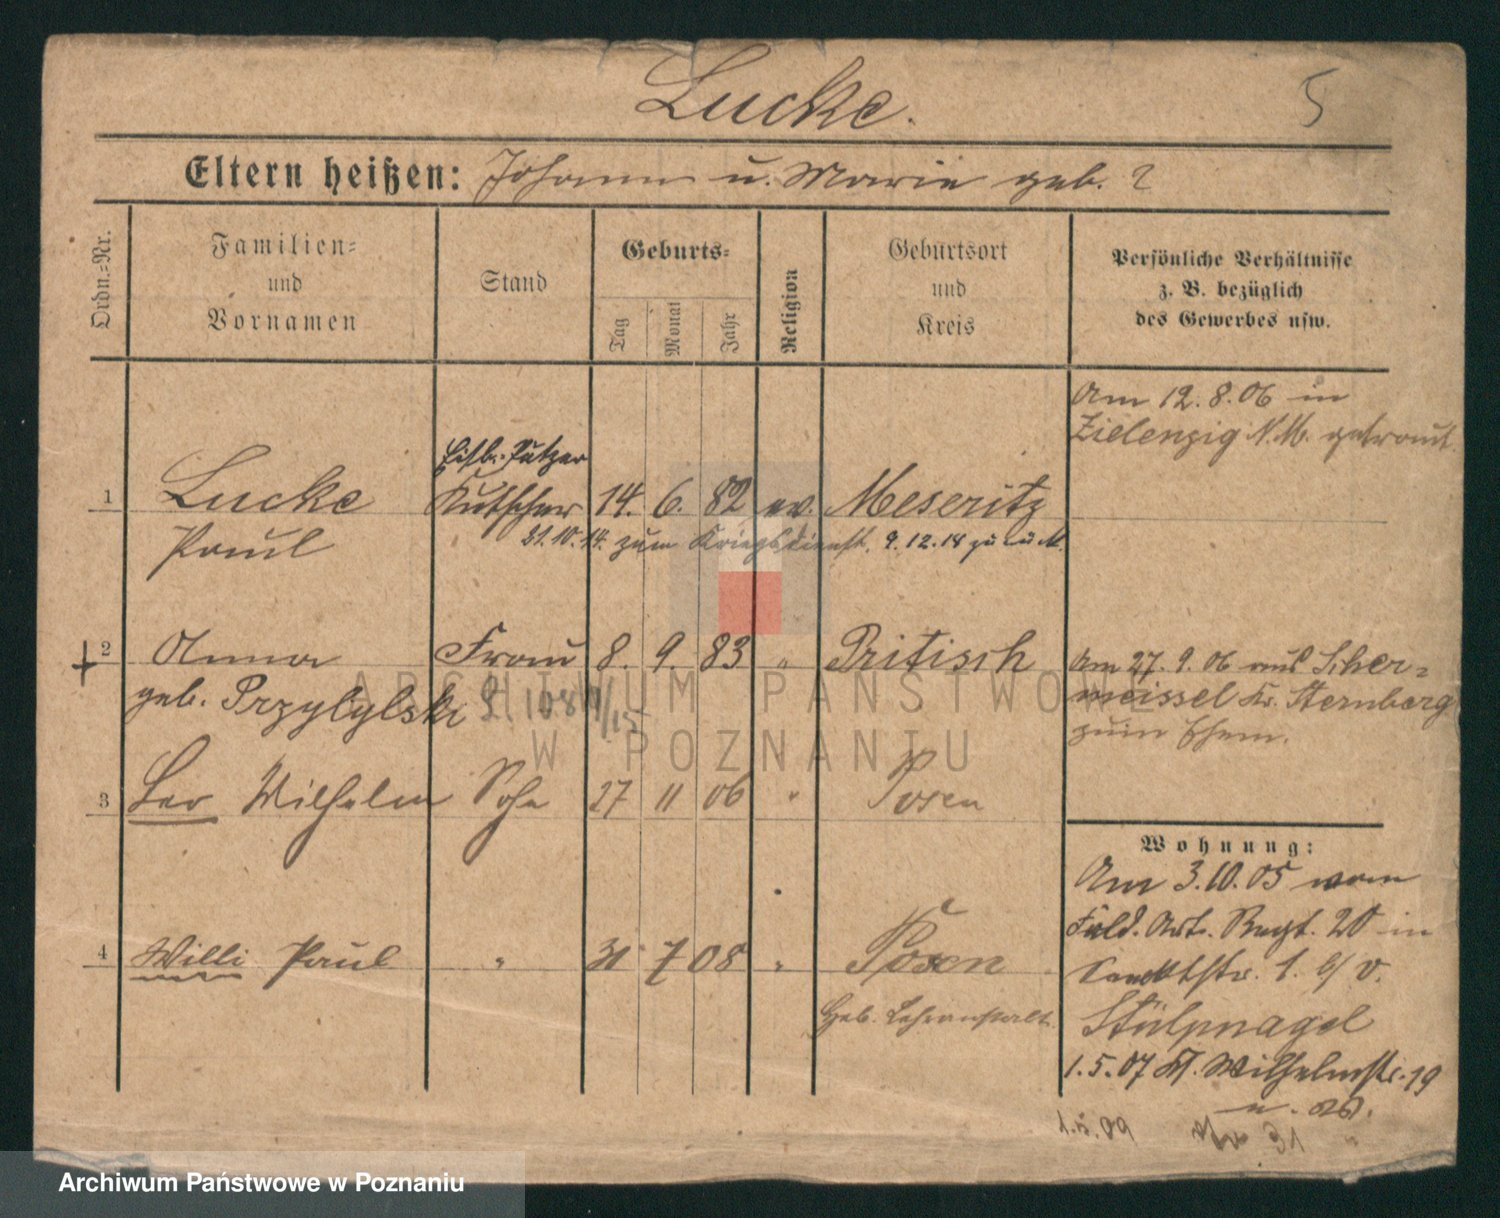 Lucke.
5
Eltern heißen: Johann u. Marie geb. ?
Ordn.=Nr.
Familien=
und
Vornamen
Stand
Geburts=
Tag
Monat
Jahr
Religion
Geburtsort
und
Kreis
Persönliche Verhältnisse
z. B. bezüglich
des Gewerbes usw.
Am 12.8.06 in
Zielenzig N.M. getraut.
Putzer
1 Lucke Kutscher 14. 6. 82 ev. Meseritz
Paul 31.10.14. zum Kriegsdienst. 9.12.18 zurück.
2 Anna Frau 8. 9. 83 " Pritisch
geb. Przylylski
Am 27.9.06 aus Scher=
meissel Kr. Sternberg
zum Ehem.
3 Leo Wilhelm Sohn 27 11 06 " Posen
4 Willi Paul " 31 7 08 " Posen
Geb. Lehranstalt.
Wohnung:
Am 3.10.05 vom
Feld. Art. Regt. 20 in
1. b/ v.
Stülpnagel
1.5.07 Kl. Wilhelmstr. 19
1.5.09
ARCHIWUM PAŃSTWOWE
W POZNANIU
Archiwum Państwowe w Poznaniu